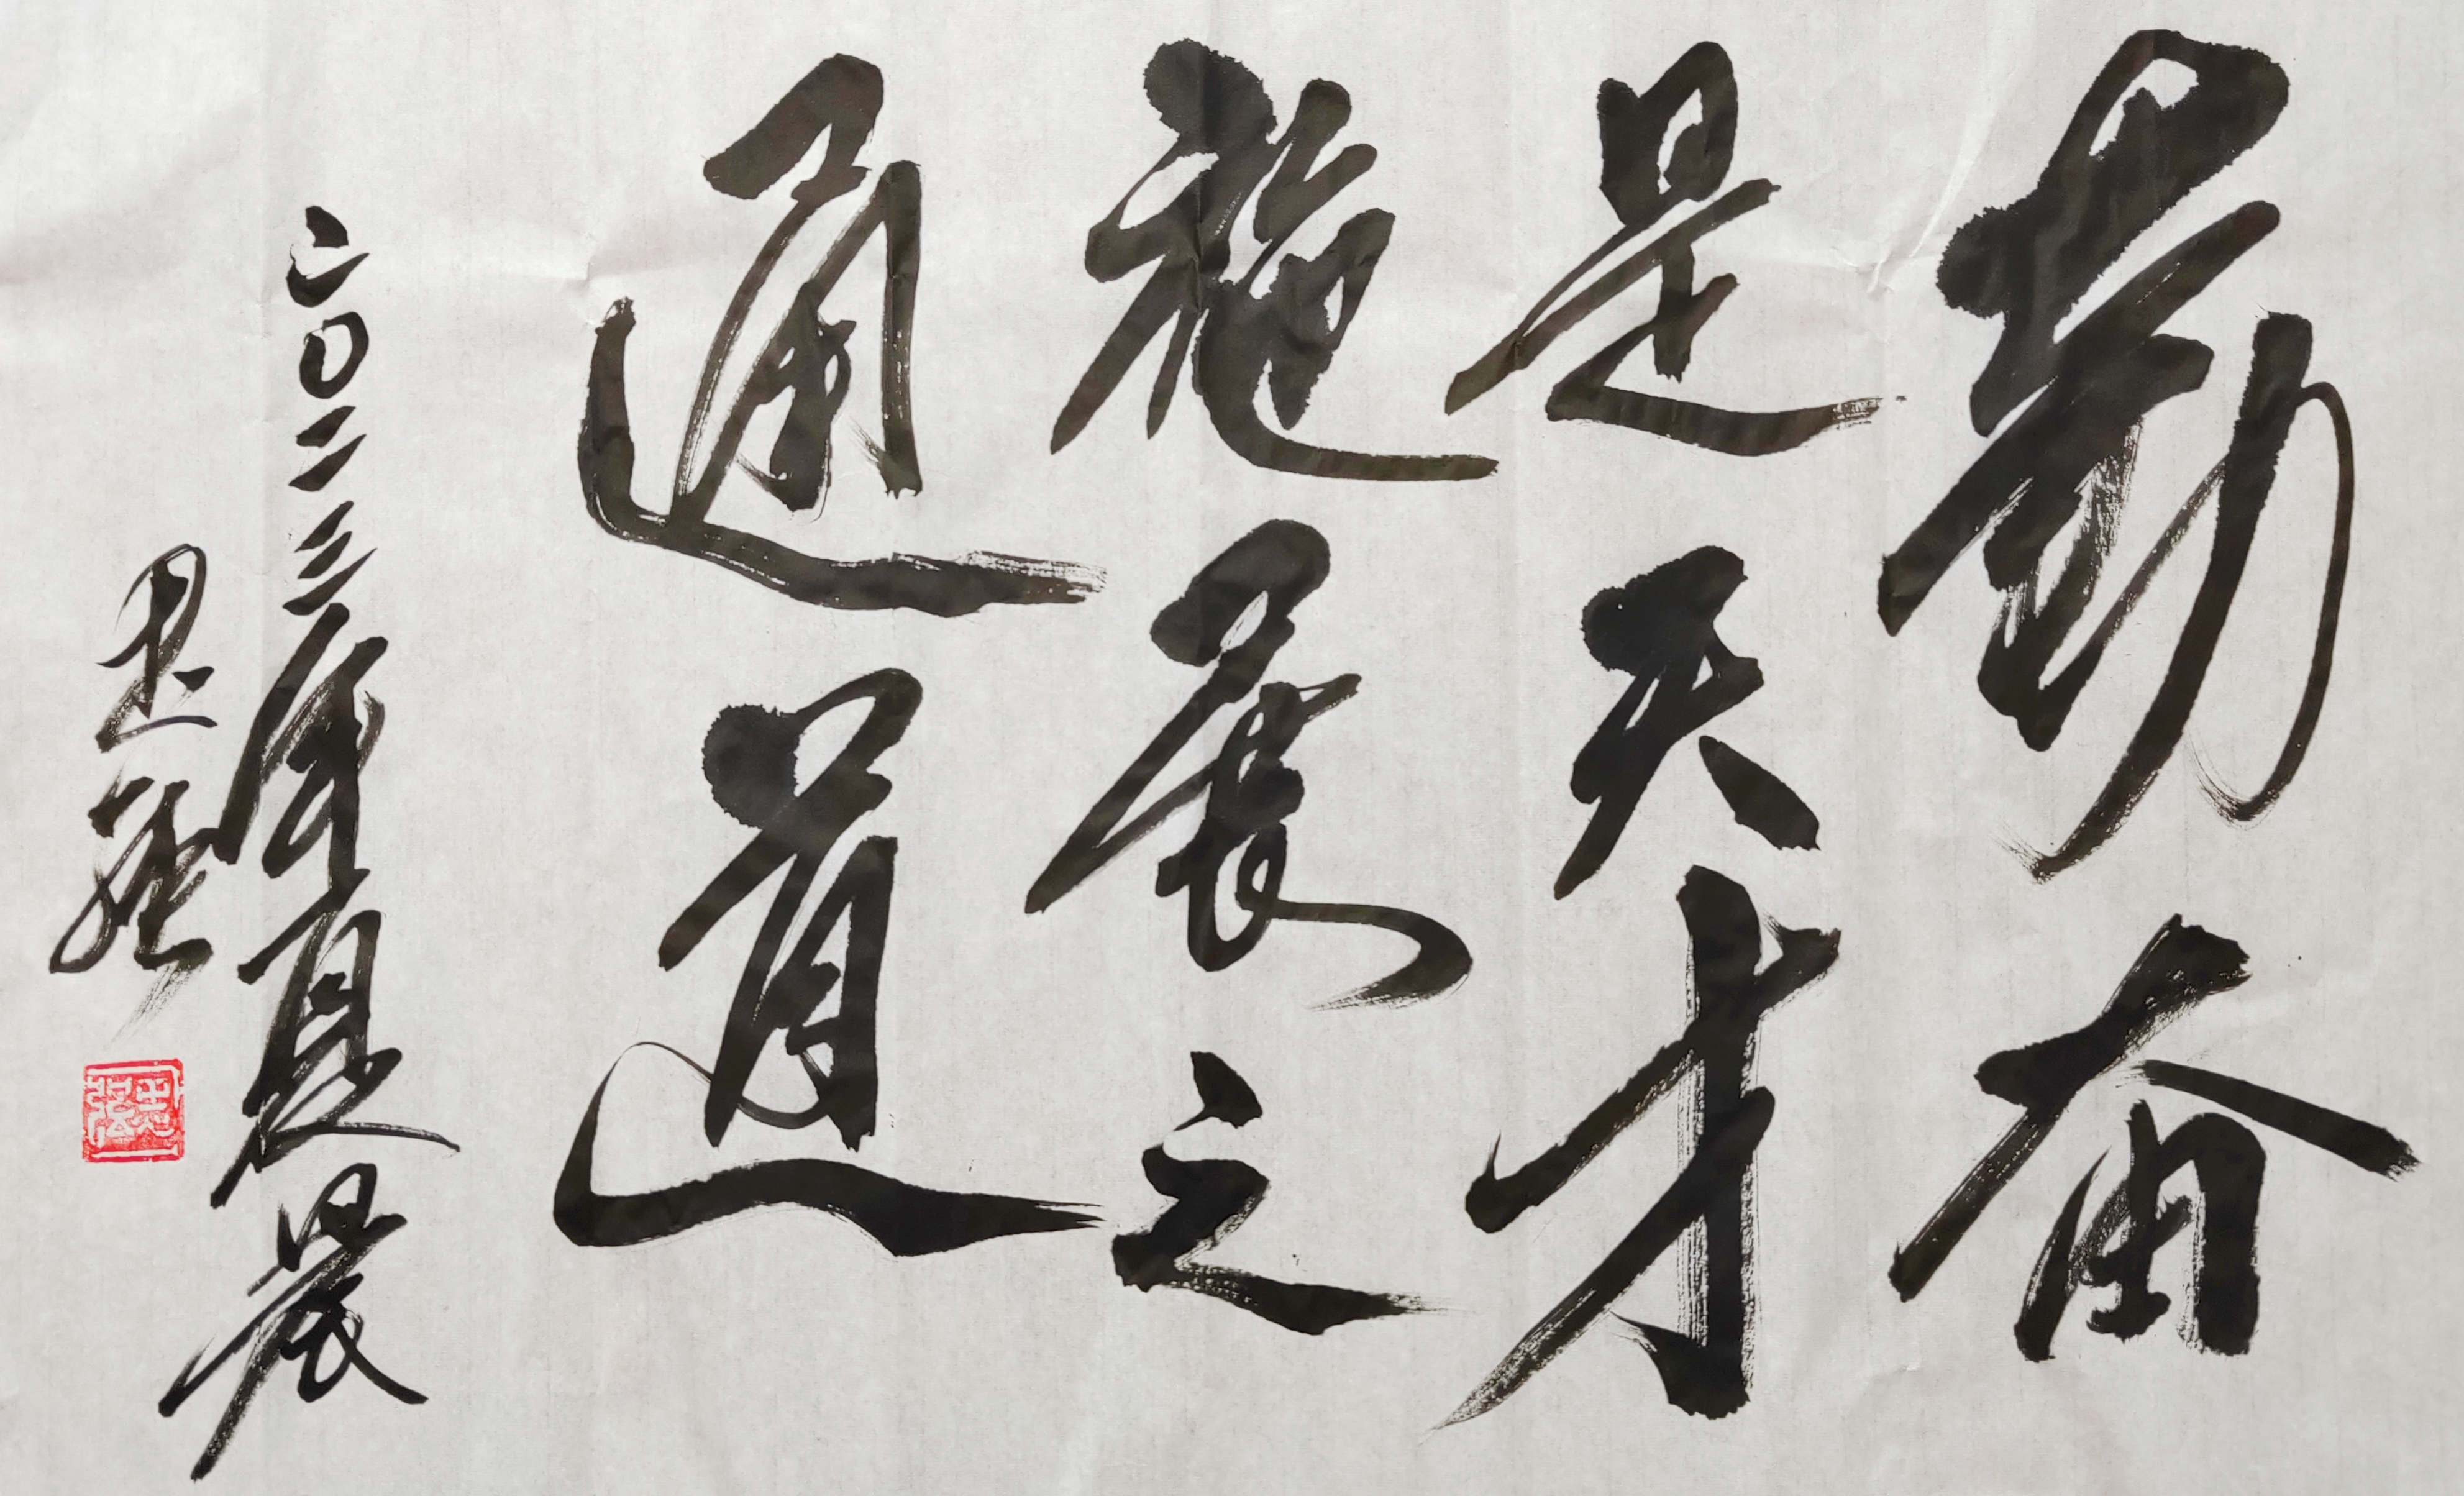 勤奋
是天才
施展之
通道
二〇二三年夏晨